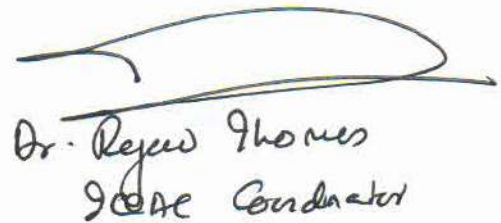 Dr. Rejeev Thomas
Coordinator